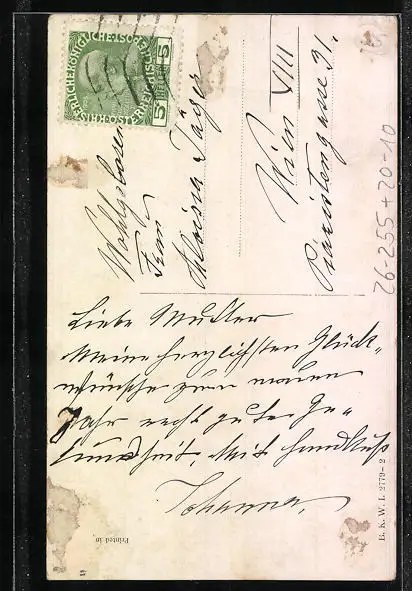 KAISERLICHE KÖNIGLICHE ÖSTERREICHISCHE POST
5 HELLER 5
Wohlgeboren
Frau
Aloisia Jäger
Wien VIII
Piaristengasse 31.
Liebe Mutter
Meine herzlichsten Glück-
wünsche zum neuen
Jahr recht gute Ge-
sundheit, Mit Handkuß
Johanna,
26-255+20-10
B. K. W. I. 2779-2
Printed in